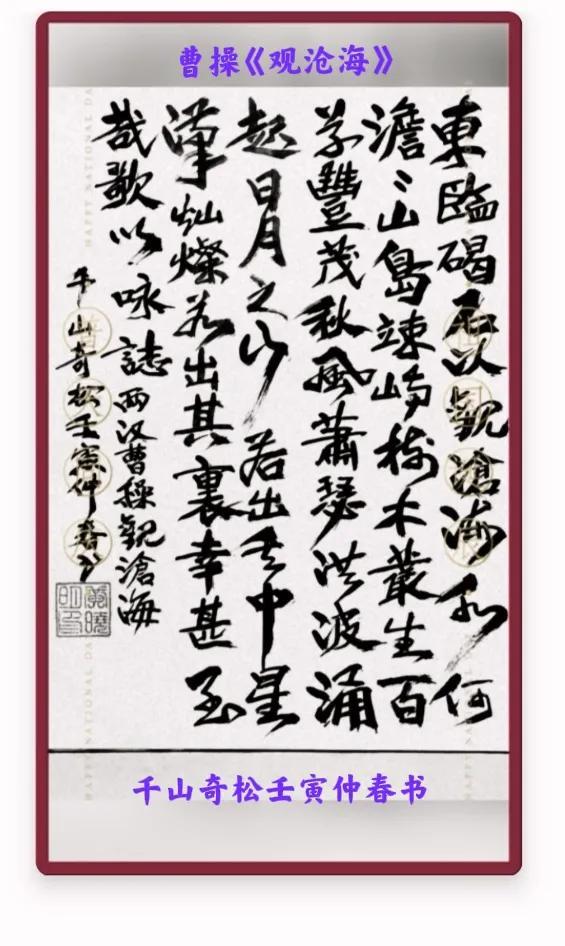 曹操《观沧海》
東臨碣石以觀滄海水何
澹〻山島竦峙樹木叢生百
草豐茂秋風蕭瑟洪波涌
起日月之行若出其中星
漢灿燦若出其裏幸甚至
哉歌以咏誌两汉曹操觀滄海
千山奇松壬寅仲春书
千山奇松壬寅仲春书
HAPPY NATIONAL DAY